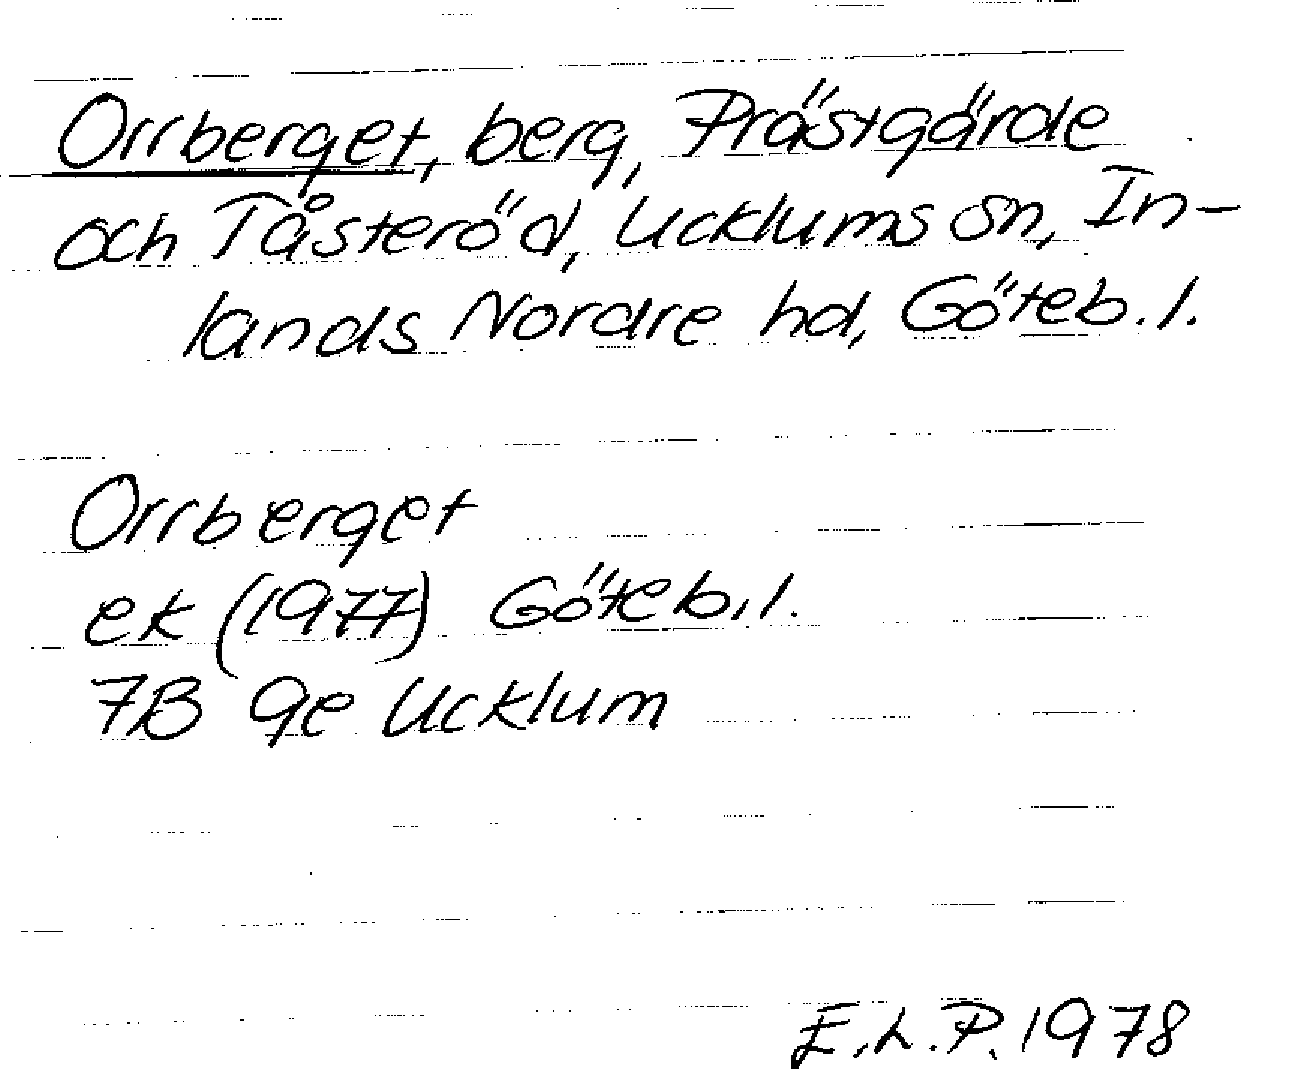 Orrberget, berg, Prästgärde
och Tåsteröd, Ucklums sn, In-
lands Nordre hd, Göteb. l.
Orrberget
ek (1977) Göteb. l.
7B 9e Ucklum
E.L.P. 1978